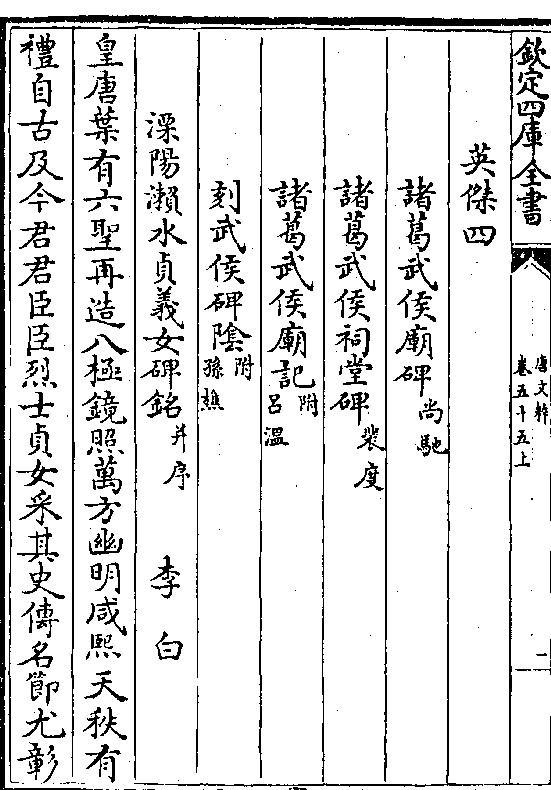 欽定四庫全書
唐文粹
卷五十五上
一
英傑四
諸葛武侯廟碑 尚馳
諸葛武侯祠堂碑 裴度
諸葛武侯廟記 附 呂溫
刻武侯碑陰 附 孫樵
溧陽瀨水貞義女碑銘 并序 李白
皇唐葉有六聖再造八極鏡照萬方幽明咸熙天秩有
禮自古及今君君臣臣烈士貞女采其史傳名節尤彰